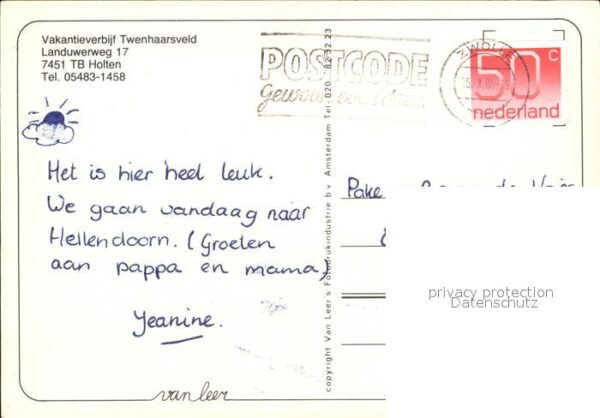 Vakantieverbijf Twenhaarsveld
Landuwerweg 17
7451 TB Holten
Tel. 05483-1458
POSTCODE
Gewoon even doen.
ZWOLLE
50 C
nederland
Het is hier heel leuk.
We gaan vandaag naar
Hellendoorn. (Groeten
aan pappa en mama)
Jeanine.
Pake
copyright Van Leer's Fotodrukindustrie b.v. Amsterdam Tel. 020 - 82 52 23
privacy protection
Datenschutz
van leer